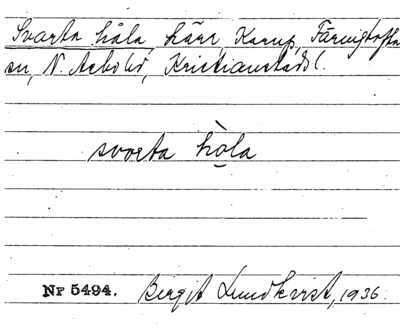 Svarta håla, kärr, Karup, Färingtofta
sn, N. Åsbo hd, Kristianstads l.
svorta hòla
Nr 5494. Birgit Lundkvist, 1936.